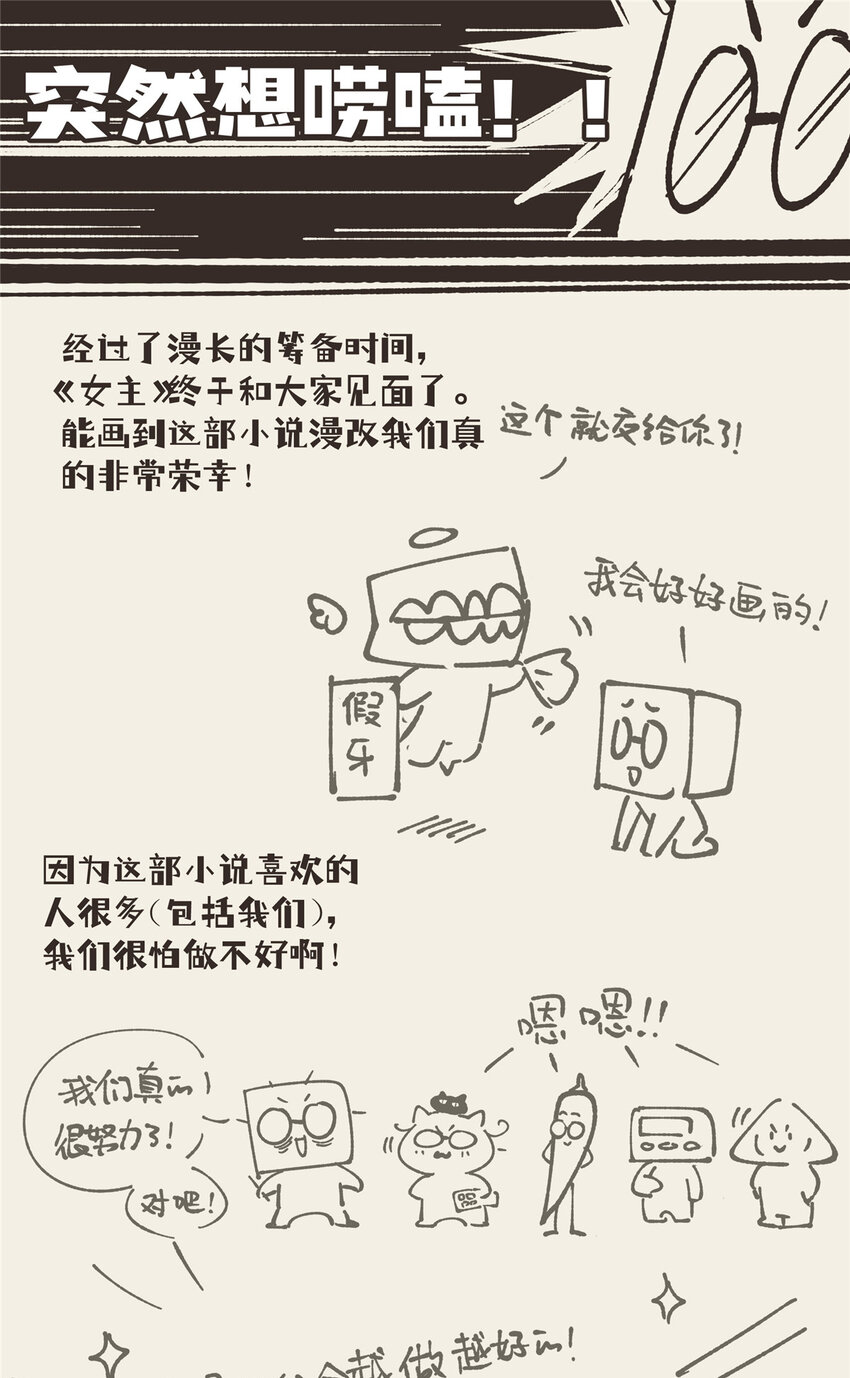 突然想唠嗑！！
经过了漫长的筹备时间，
《女主》终于和大家见面了。
能画到这部小说漫改我们真
的非常荣幸！
这个就交给你了！
我会好好画的！
假
牙
因为这部小说喜欢的
人很多（包括我们），
我们很怕做不好啊！
嗯嗯！！
我们真的
很努力了！
对吧！
会越做越好的！